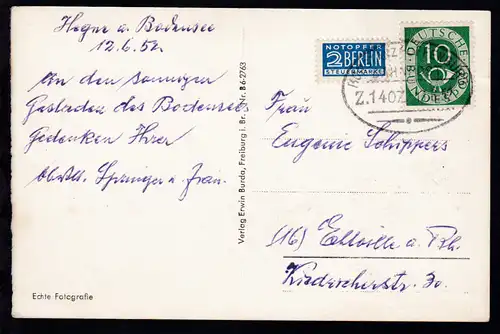 Hegne a. Bodensee
12.6.52.
An den sonnigen
Gestaden des Bodensees
gedenken Ihrer
Springer u. Frau.
Echte Fotografie
Verlag Erwin Burda, Freiburg i. Br. Nr. B 6-2763
NOTOPFER
2 BERLIN
STEUERMARKE
DEUTSCHE
10
BUNDESPOST
Z.1402
Frau
Eugenie Schippers
(16) Eltville a. Rh.
30.